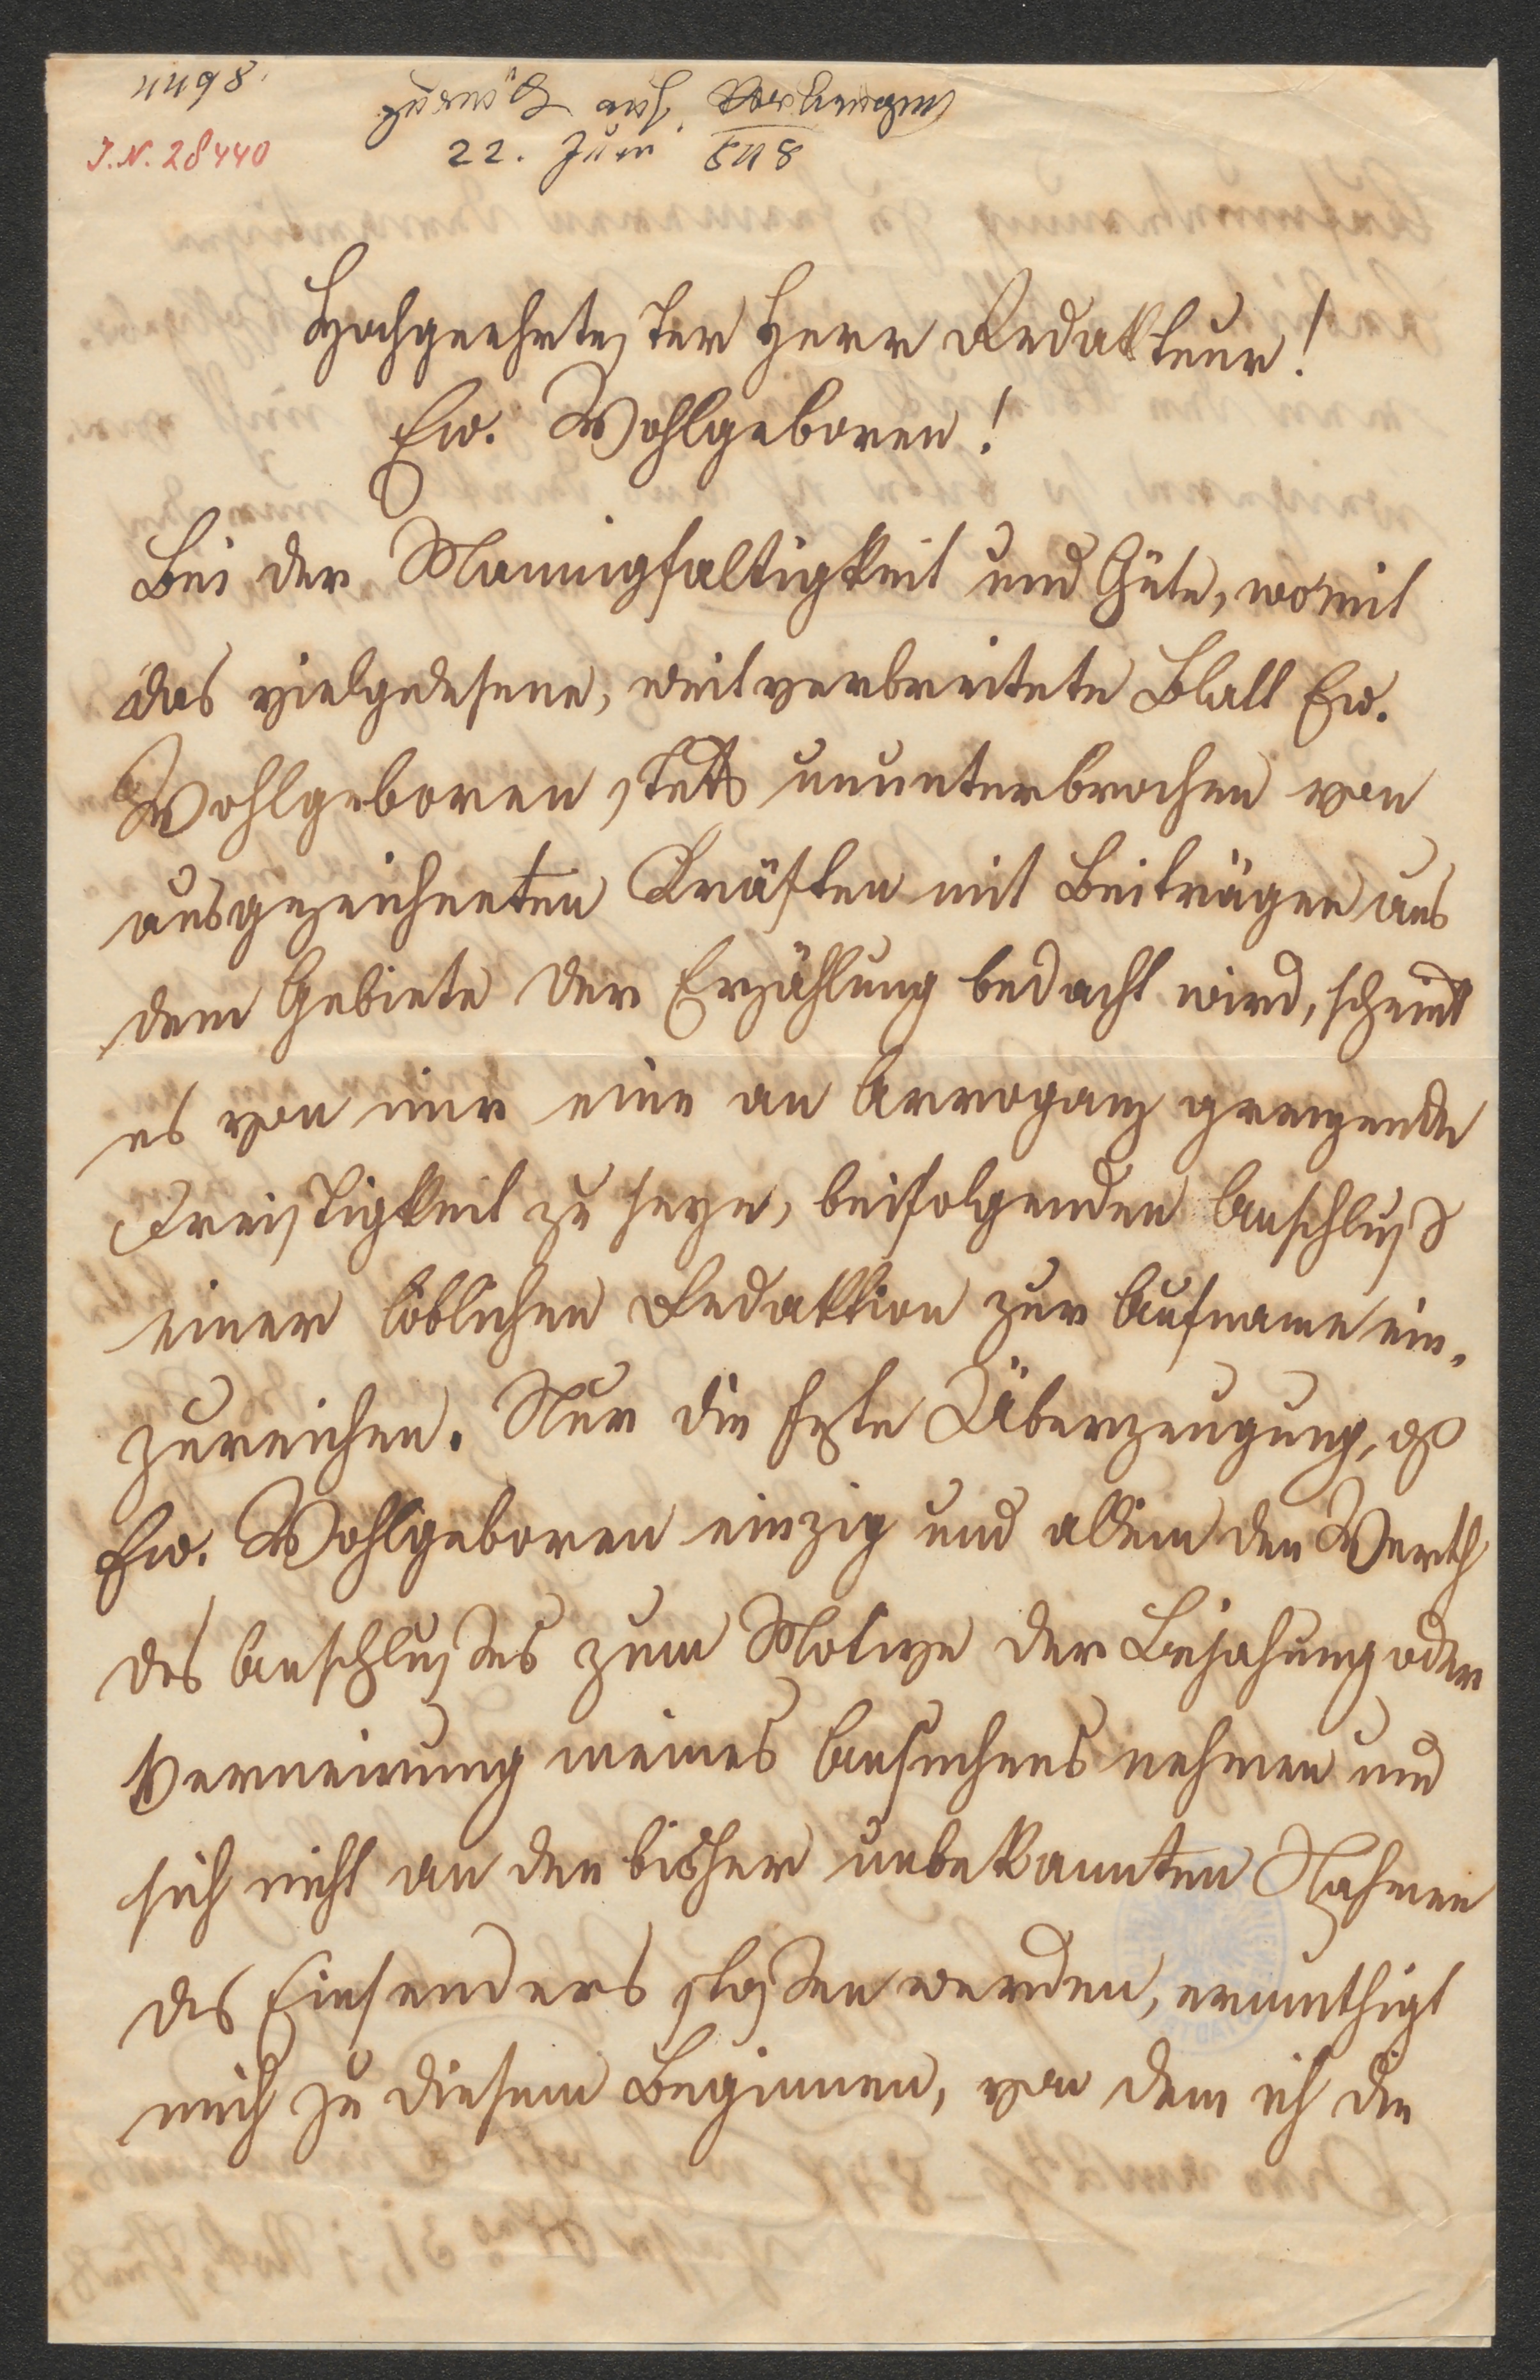 4498.
zurück auf Verlangen
22. Juni 848
J.N. 28440
Hochgeehrtester Herr Redakteur!
Ew. Wohlgeboren!
Bei der Mannigfaltigkeit und Güte, womit
das vielgelesene, weitverbreitete Blatt Ew.
Wohlgeboren stets ununterbrochen von
ausgezeichneten Kräften mit Beiträgen aus
dem Gebiete der Erzählung bedacht wird, scheint
es von mir eine an Arroganz grenzende
Dreistigkeit zu seyn, beifolgenden Anschluß
einer löblichen Redaktion zur Aufname ein-
zureichen. Nur die feste Überzeugung, dß
Ew. Wohlgeboren einzig und allein den Werth
des Anschlußes zum Motive der Bejahung oder
Verneinung meines Ansuchens nehmen und
sich nicht an den bisher unbekannten Nahmen
des Einsenders stoßen werden, ermuthigt
mich zu diesem Beginnen, von dem ich die